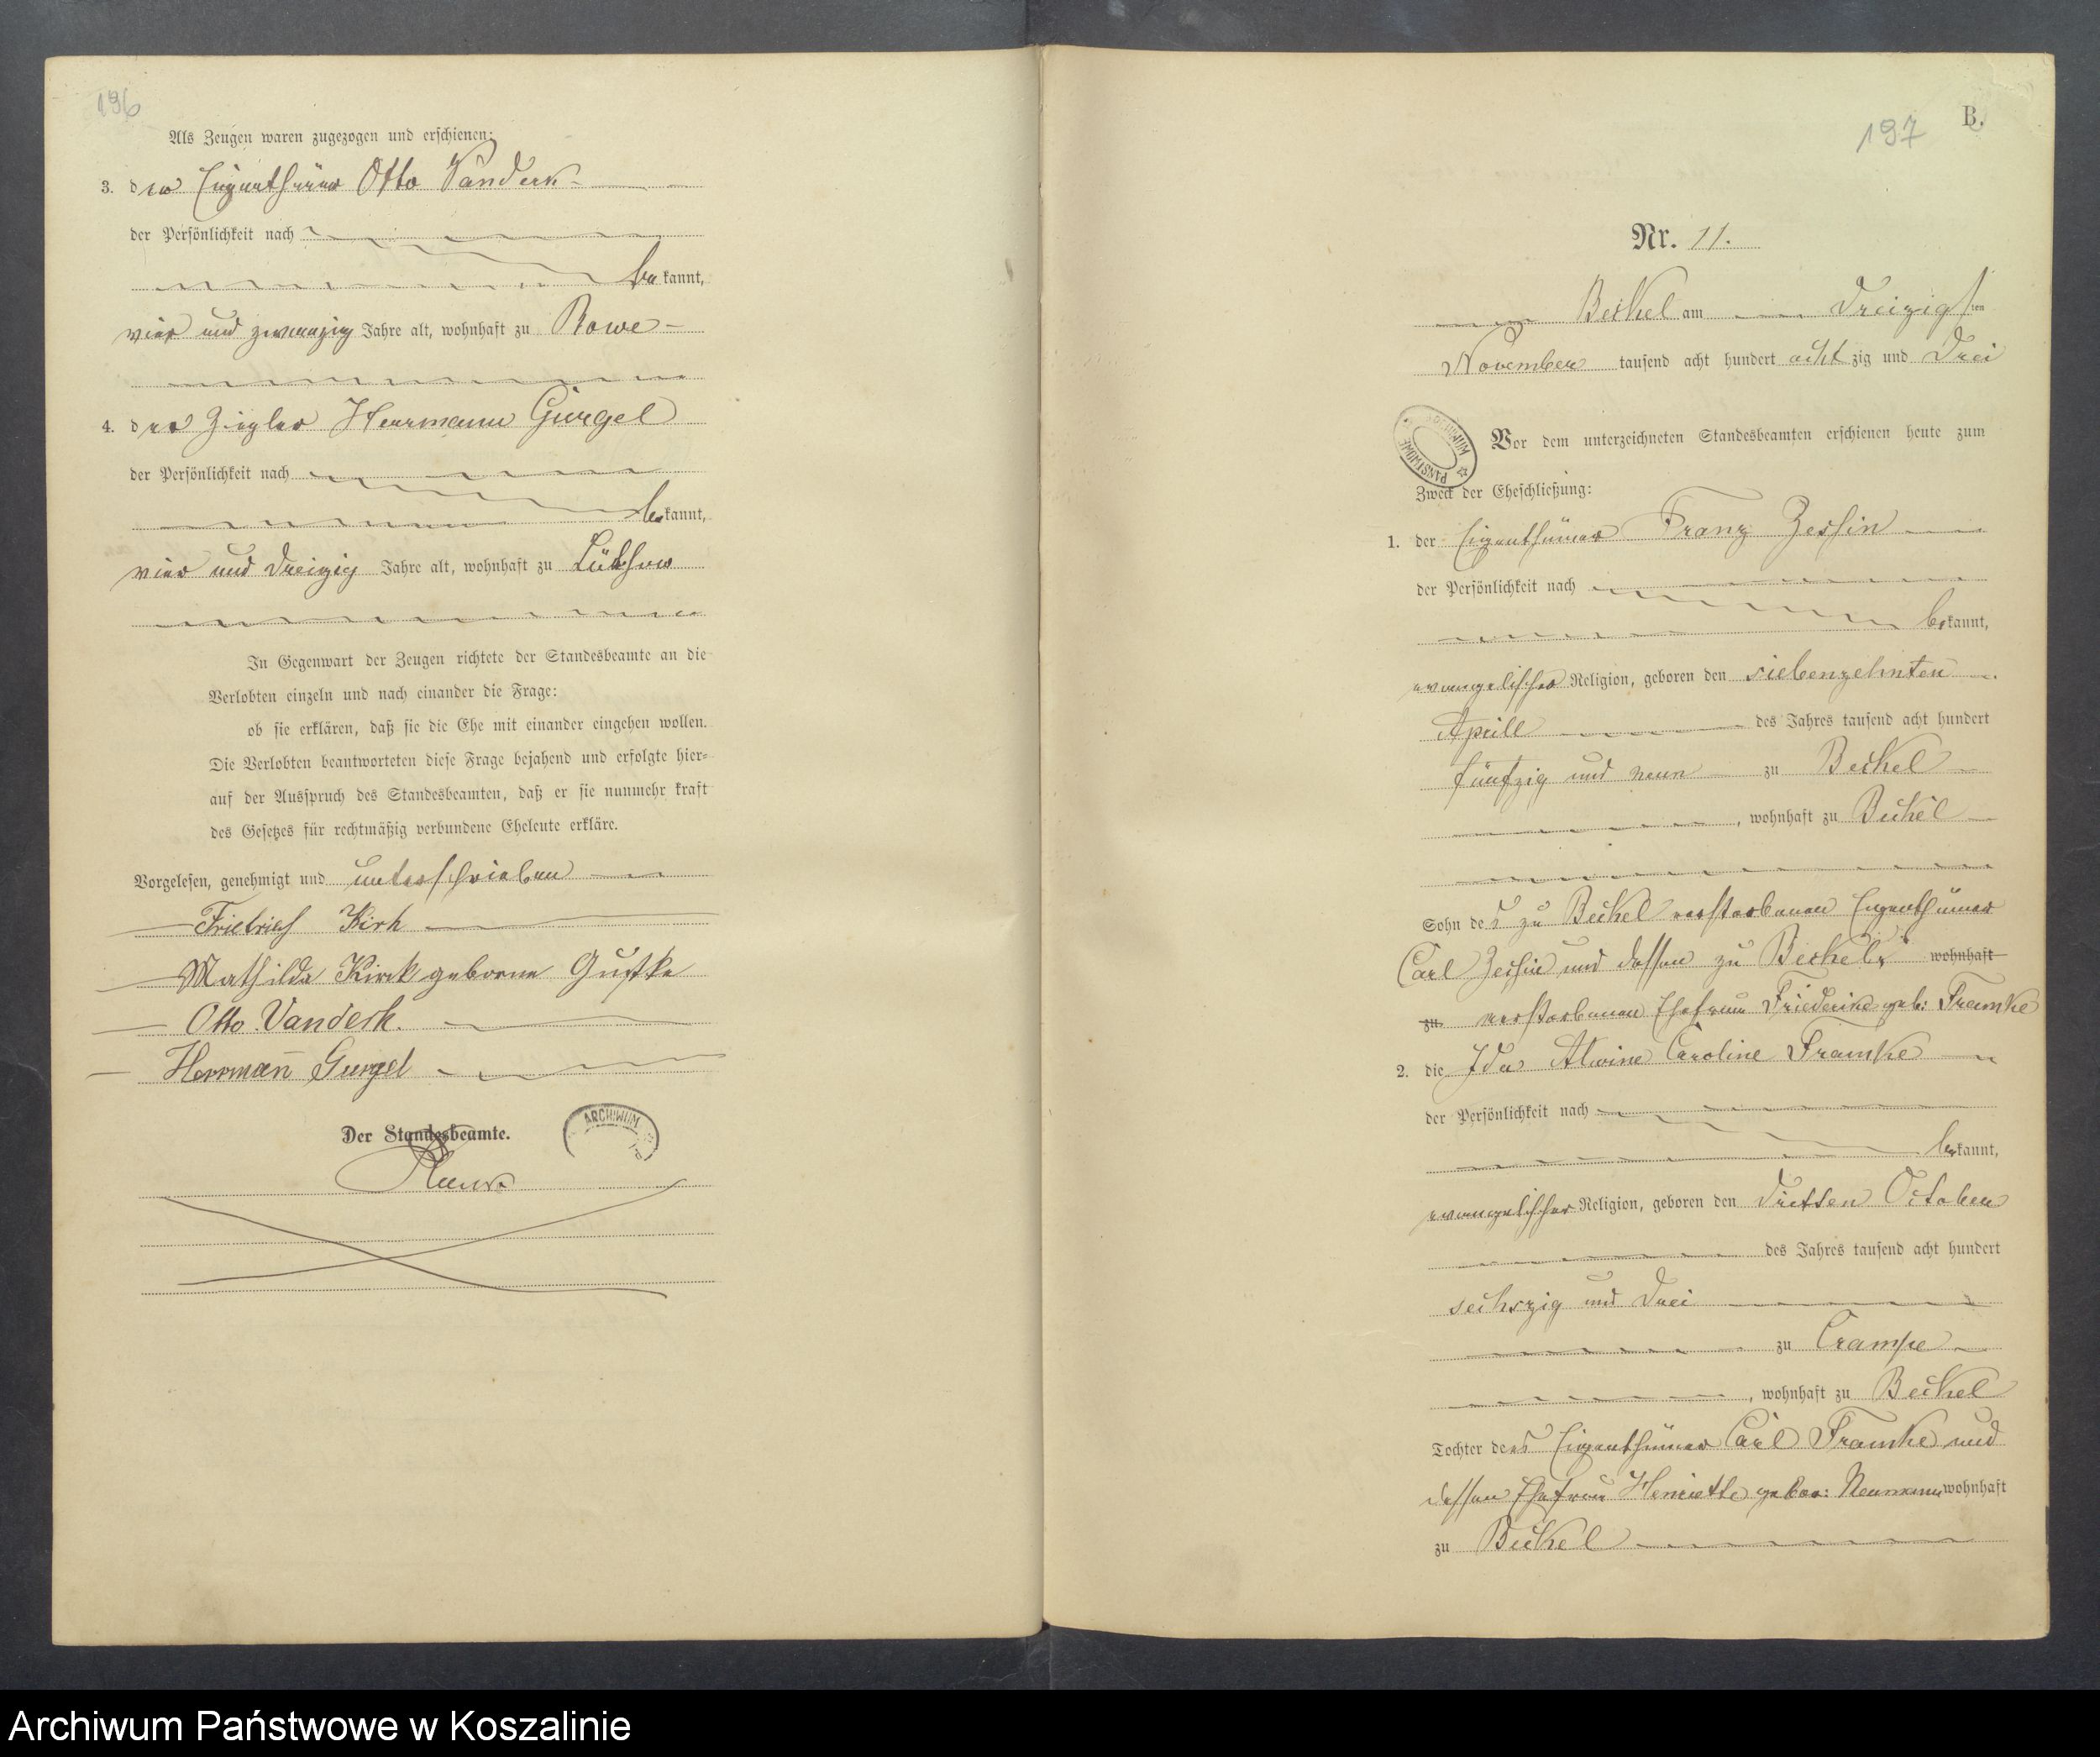 196
Als Zeugen waren zugezogen und erschienen:
3. der Eigenthümer Otto Vanderk
der Persönlichkeit nach
bekannt,
vier und zwanzig Jahre alt, wohnhaft zu Rowe
4. der Ziegler Herrmann Gurgel
der Persönlichkeit nach
bekannt,
vier und dreizig Jahre alt, wohnhaft zu Lübsow
In Gegenwart der Zeugen richtete der Standesbeamte an die
Verlobten einzeln und nach einander die Frage:
ob sie erklären, daß sie die Ehe mit einander eingehen wollen.
Die Verlobten beantworteten diese Frage bejahend und erfolgte hier-
auf der Ausspruch des Standesbeamten, daß er sie nunmehr kraft
des Gesetzes für rechtmäßig verbundene Eheleute erkläre.
Vorgelesen, genehmigt und unterschrieben
Friedrich Kirk
Mathilde Kirk geborne Gustke
Otto Vanderk.
Herrmann Gurgel
Der Standesbeamte.
ARCHIWUM
197
B.
Nr. 11.
Beckel am Dreizigsten
November tausend acht hundert achtzig und Drei
PAŃSTWOWE
Vor dem unterzeichneten Standesbeamten erschienen heute zum
Zweck der Eheschließung:
1. der Eigenthümer Franz Zessin
der Persönlichkeit nach
bekannt,
evangelischer Religion, geboren den siebenzehnten
Aprill des Jahres tausend acht hundert
fünfzig und neun zu Beckel
, wohnhaft zu Beckel
Sohn des zu Beckel verstorbenen Eigenthümer
Carl Zessin und dessen zu Beckel wohnhaft
zu verstorbenen Ehefrau Friederike geb: Framke
2. die Ida Alwine Caroline Framke
der Persönlichkeit nach
bekannt,
evangelischer Religion, geboren den dritten October
des Jahres tausend acht hundert
sechszig und Drei
zu Crampe
, wohnhaft zu Beckel
Tochter des Eigenthümer Carl Framke und
dessen Ehefrau Henriette gebor: Neumann wohnhaft
zu Beckel
Archiwum Państwowe w Koszalinie